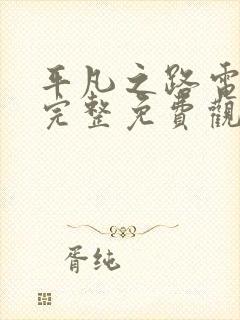 平凡之路電
完整免費觀
胥纯